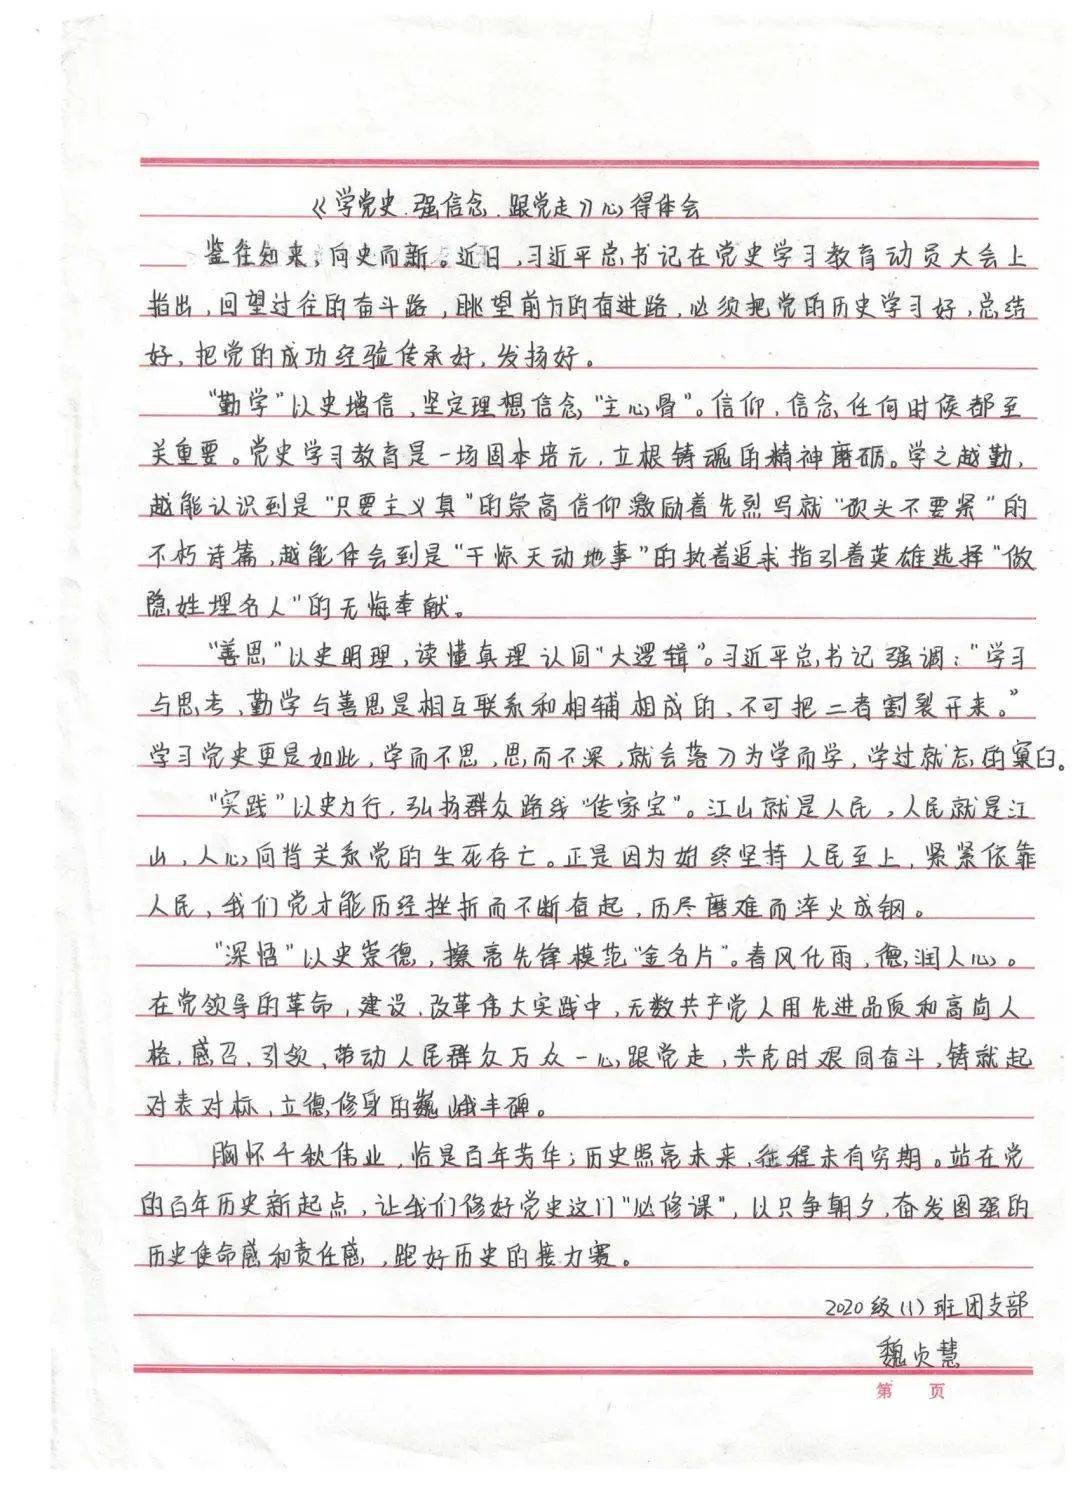 《学党史.强信念.跟党走》心得体会
鉴往知来,向史而新。近日,习近平总书记在党史学习教育动员大会上
指出,回望过往的奋斗路,眺望前方的奋进路,必须把党的历史学习好,总结
好,把党的成功经验传承好,发扬好。
“勤学”以史增信,坚定理想信念“主心骨”。信仰、信念任何时候都至
关重要。党史学习教育是一场固本培元、立根铸魂的精神磨砺。学之越勤,
越能认识到是“只要主义真”的崇高信仰激励着先烈写就“砍头不要紧”的
不朽诗篇,越能体会到是“干惊天动地事”的执着追求指引着英雄选择“做
隐姓埋名人”的无悔奉献。
“善思”以史明理,读懂真理认同“大逻辑”。习近平总书记强调:“学习
与思考、勤学与善思是相互联系和相辅相成的、不可把二者割裂开来。”
学习党史更是如此,学而不思,思而不深,就会落入为学而学,学过就忘的窠臼。
“实践”以史力行,弘扬群众路线“传家宝”。江山就是人民,人民就是江
山,人心向背关系党的生死存亡。正是因为始终坚持人民至上,紧紧依靠
人民,我们党才能历经挫折而不断奋起,历尽磨难而淬火成钢。
“深悟”以史崇德,擦亮先锋模范“金名片”。春风化雨,德润人心。
在党领导的革命,建设、改革伟大实践中,无数共产党人用先进品质和高尚人
格,感召、引领、带动人民群众万众一心跟党走,共克时艰同奋斗,铸就起
对表对标,立德修身的巍峨丰碑。
胸怀千秋伟业,恰是百年芳华;历史照亮未来,征程未有穷期。站在党
的百年历史新起点,让我们修好党史这门“必修课”,以只争朝夕,奋发图强的
历史使命感和责任感,跑好历史的接力赛。
2020级(1)班团支部
魏贞慧
第 页